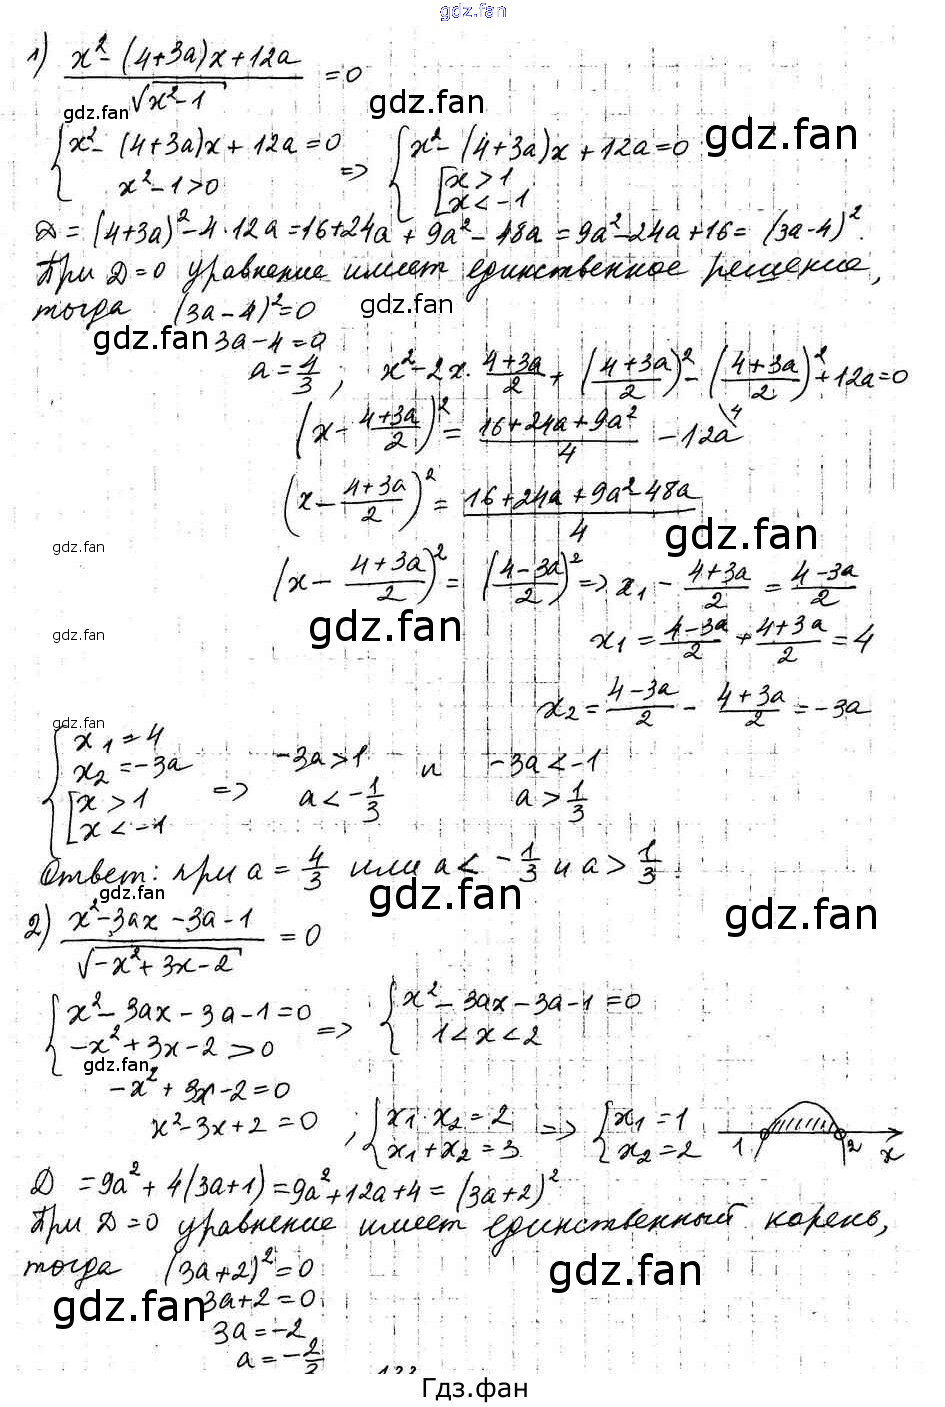 gdz.fan
1) (x² - (4+3a)x + 12a) / √(x²-1) = 0
gdz.fan gdz.fan gdz.fan
{ x² - (4+3a)x + 12a = 0 => { x² - (4+3a)x + 12a = 0
x² - 1 > 0 [ x > 1
x < -1
D = (4+3a)² - 4·12a = 16 + 24a + 9a² - 48a = 9a² - 24a + 16 = (3a-4)².
При D = 0 уравнение имеет единственное решение,
тогда (3a-4)² = 0 gdz.fan
gdz.fan 3a - 4 = 0 gdz.fan
a = 4/3 ; x² - 2x · (4+3a)/2 + ((4+3a)/2)² - ((4+3a)/2)² + 12a = 0
(x - (4+3a)/2)² = (16 + 24a + 9a²)/4 - 12a \4
(x - (4+3a)/2)² = (16 + 24a + 9a² - 48a)/4
gdz.fan gdz.fan
(x - (4+3a)/2)² = ((4-3a)/2)² => x₁ - (4+3a)/2 = (4-3a)/2
gdz.fan gdz.fan
x₁ = (4-3a)/2 + (4+3a)/2 = 4
x₂ = (4-3a)/2 - (4+3a)/2 = -3a
gdz.fan
{ x₁ = 4
x₂ = -3a => -3a > 1 и -3a < -1
[ x > 1 a < -1/3 a > 1/3
x < -1
Ответ: при a = 4/3 или a < -1/3 и a > 1/3.
gdz.fan gdz.fan gdz.fan
2) (x² - 3ax - 3a - 1) / √(-x² + 3x - 2) = 0
{ x² - 3ax - 3a - 1 = 0 => { x² - 3ax - 3a - 1 = 0
-x² + 3x - 2 > 0 1 < x < 2
gdz.fan
-x² + 3x - 2 = 0
x² - 3x + 2 = 0 ; { x₁ · x₂ = 2 => { x₁ = 1
x₁ + x₂ = 3 x₂ = 2 1 2 x
D = 9a² + 4(3a+1) = 9a² + 12a + 4 = (3a+2)²
При D = 0 уравнение имеет единственный корень,
тогда (3a+2)² = 0 gdz.fan
gdz.fan 3a + 2 = 0
3a = -2
a = -2/3
Гдз.фан